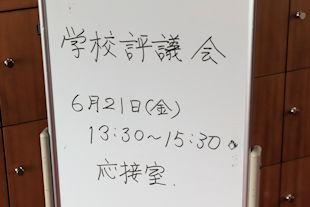 学校評議会
6月21日(金)
13:30～15:30
応接室